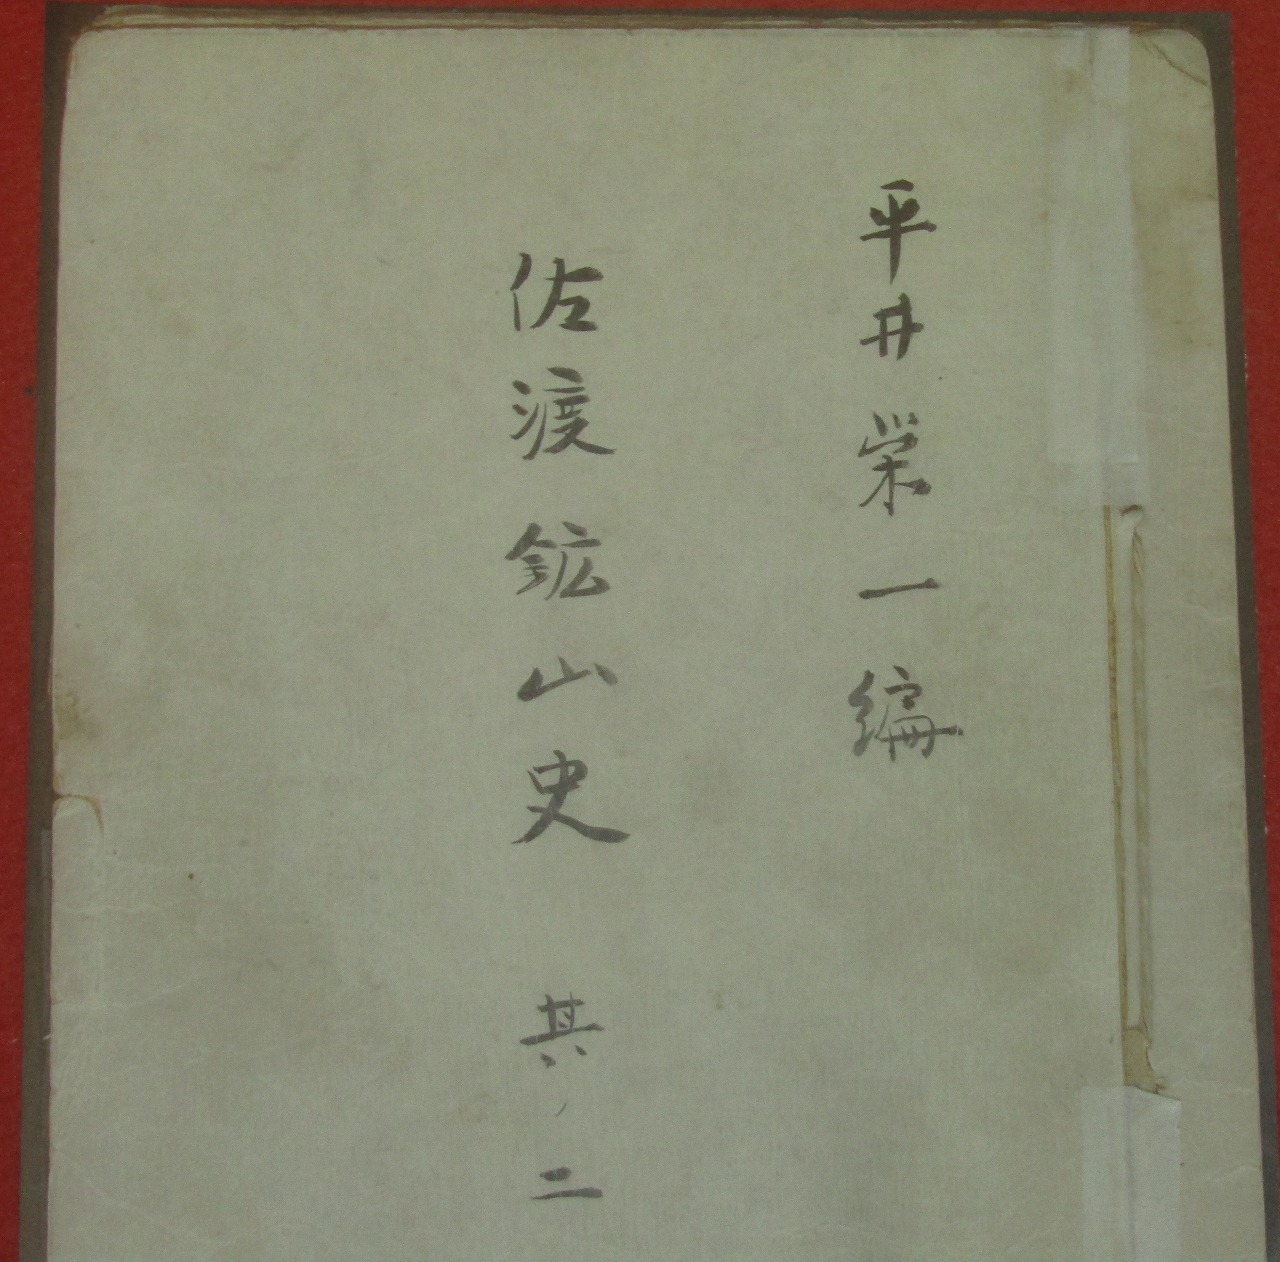 平井栄一編
佐渡鉱山史 其ノ二